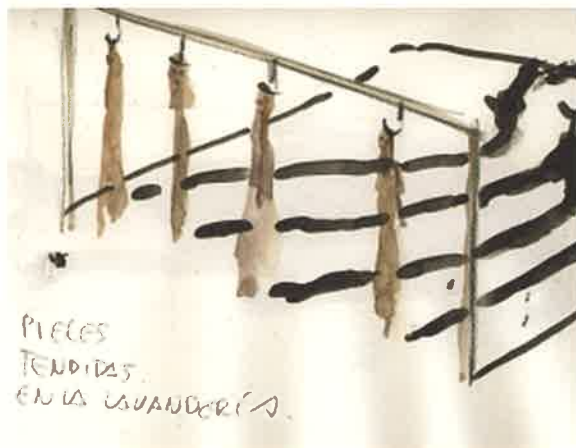 PIELES
TENDIDAS.
EN LA LAVANDERÍA.